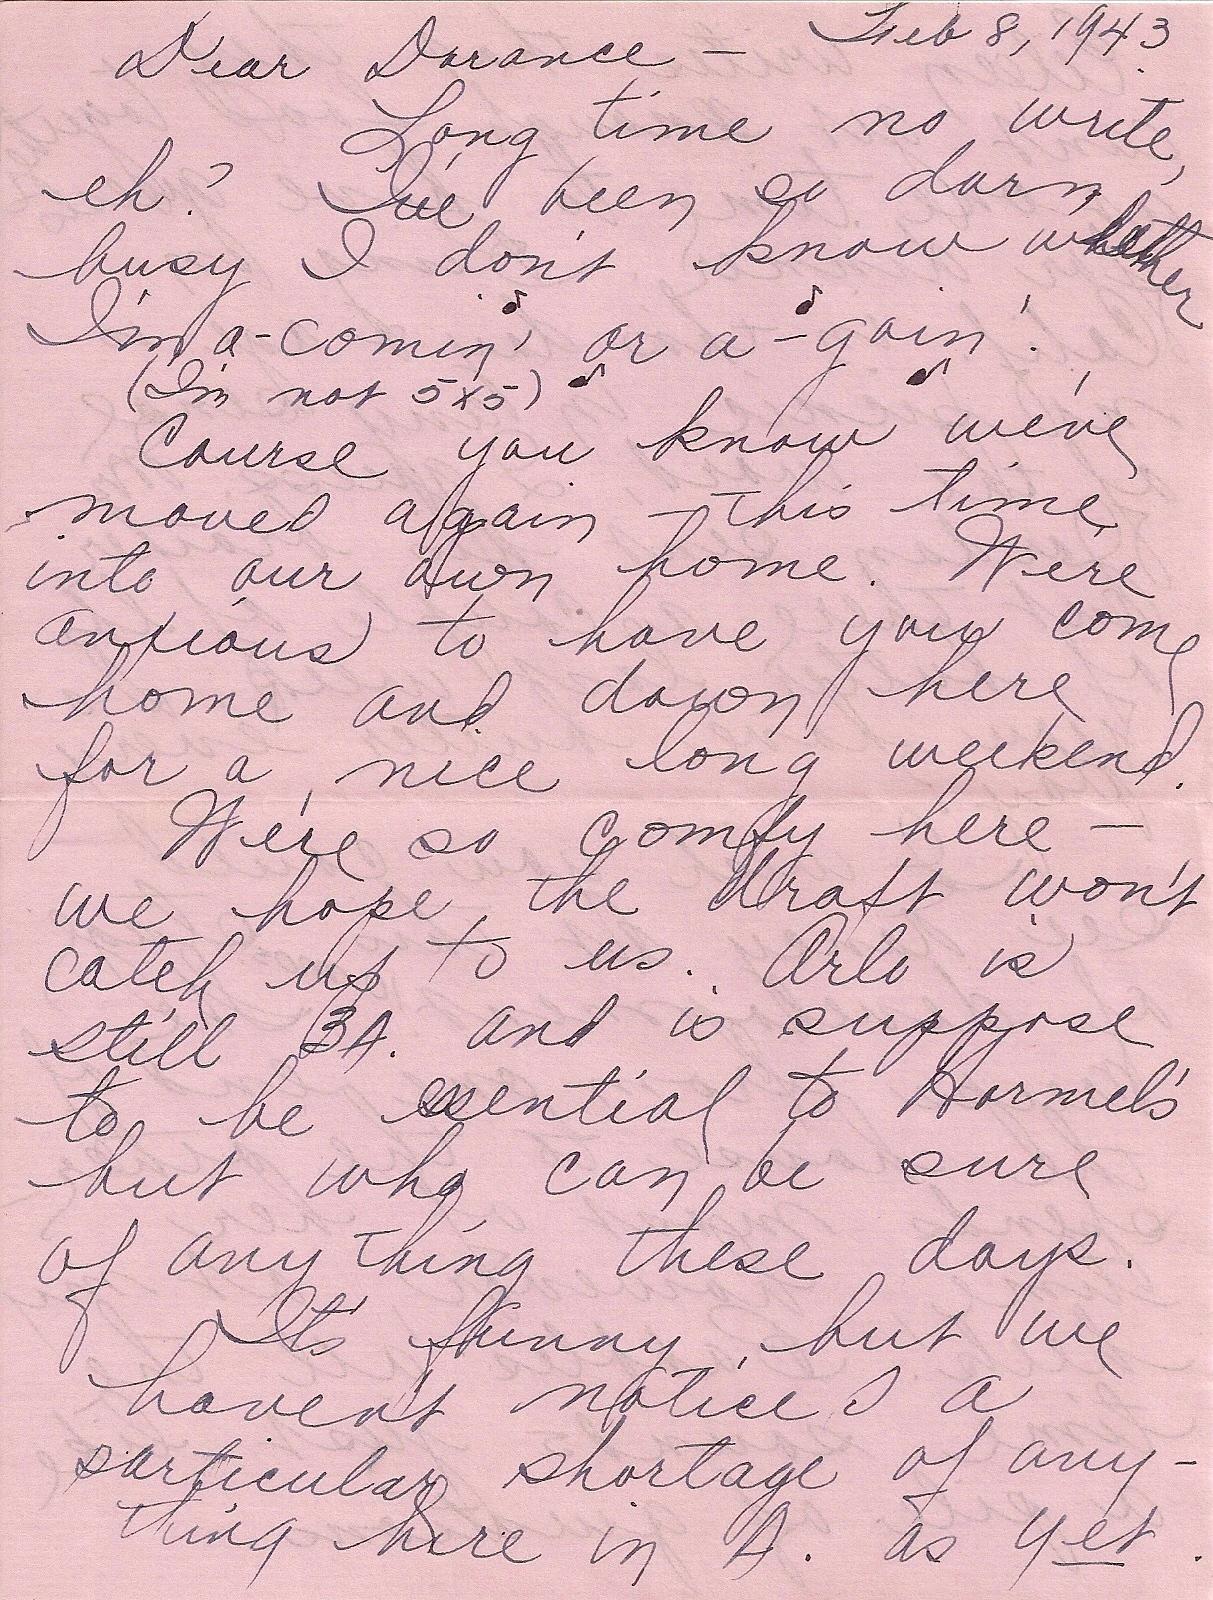 Feb 8, 1943.
Dear Dorance —
Long time no write,
eh? I've been so darn
busy I don't know whether
I'm a-comin' or a-goin'!
(I'm not 5x5)
Course you know we've
moved again - this time
into our own home. We're
anxious to have you come
home and down here
for a nice long weekend.
We're so comfy here —
we hope the draft won't
catch up to us. Arlo is
still 3A. and is suppose
to be essential to Hormel's
but who can be sure
of anything these days.
It's funny, but we
haven't noticed a
particular shortage of any-
thing here in A. as yet.